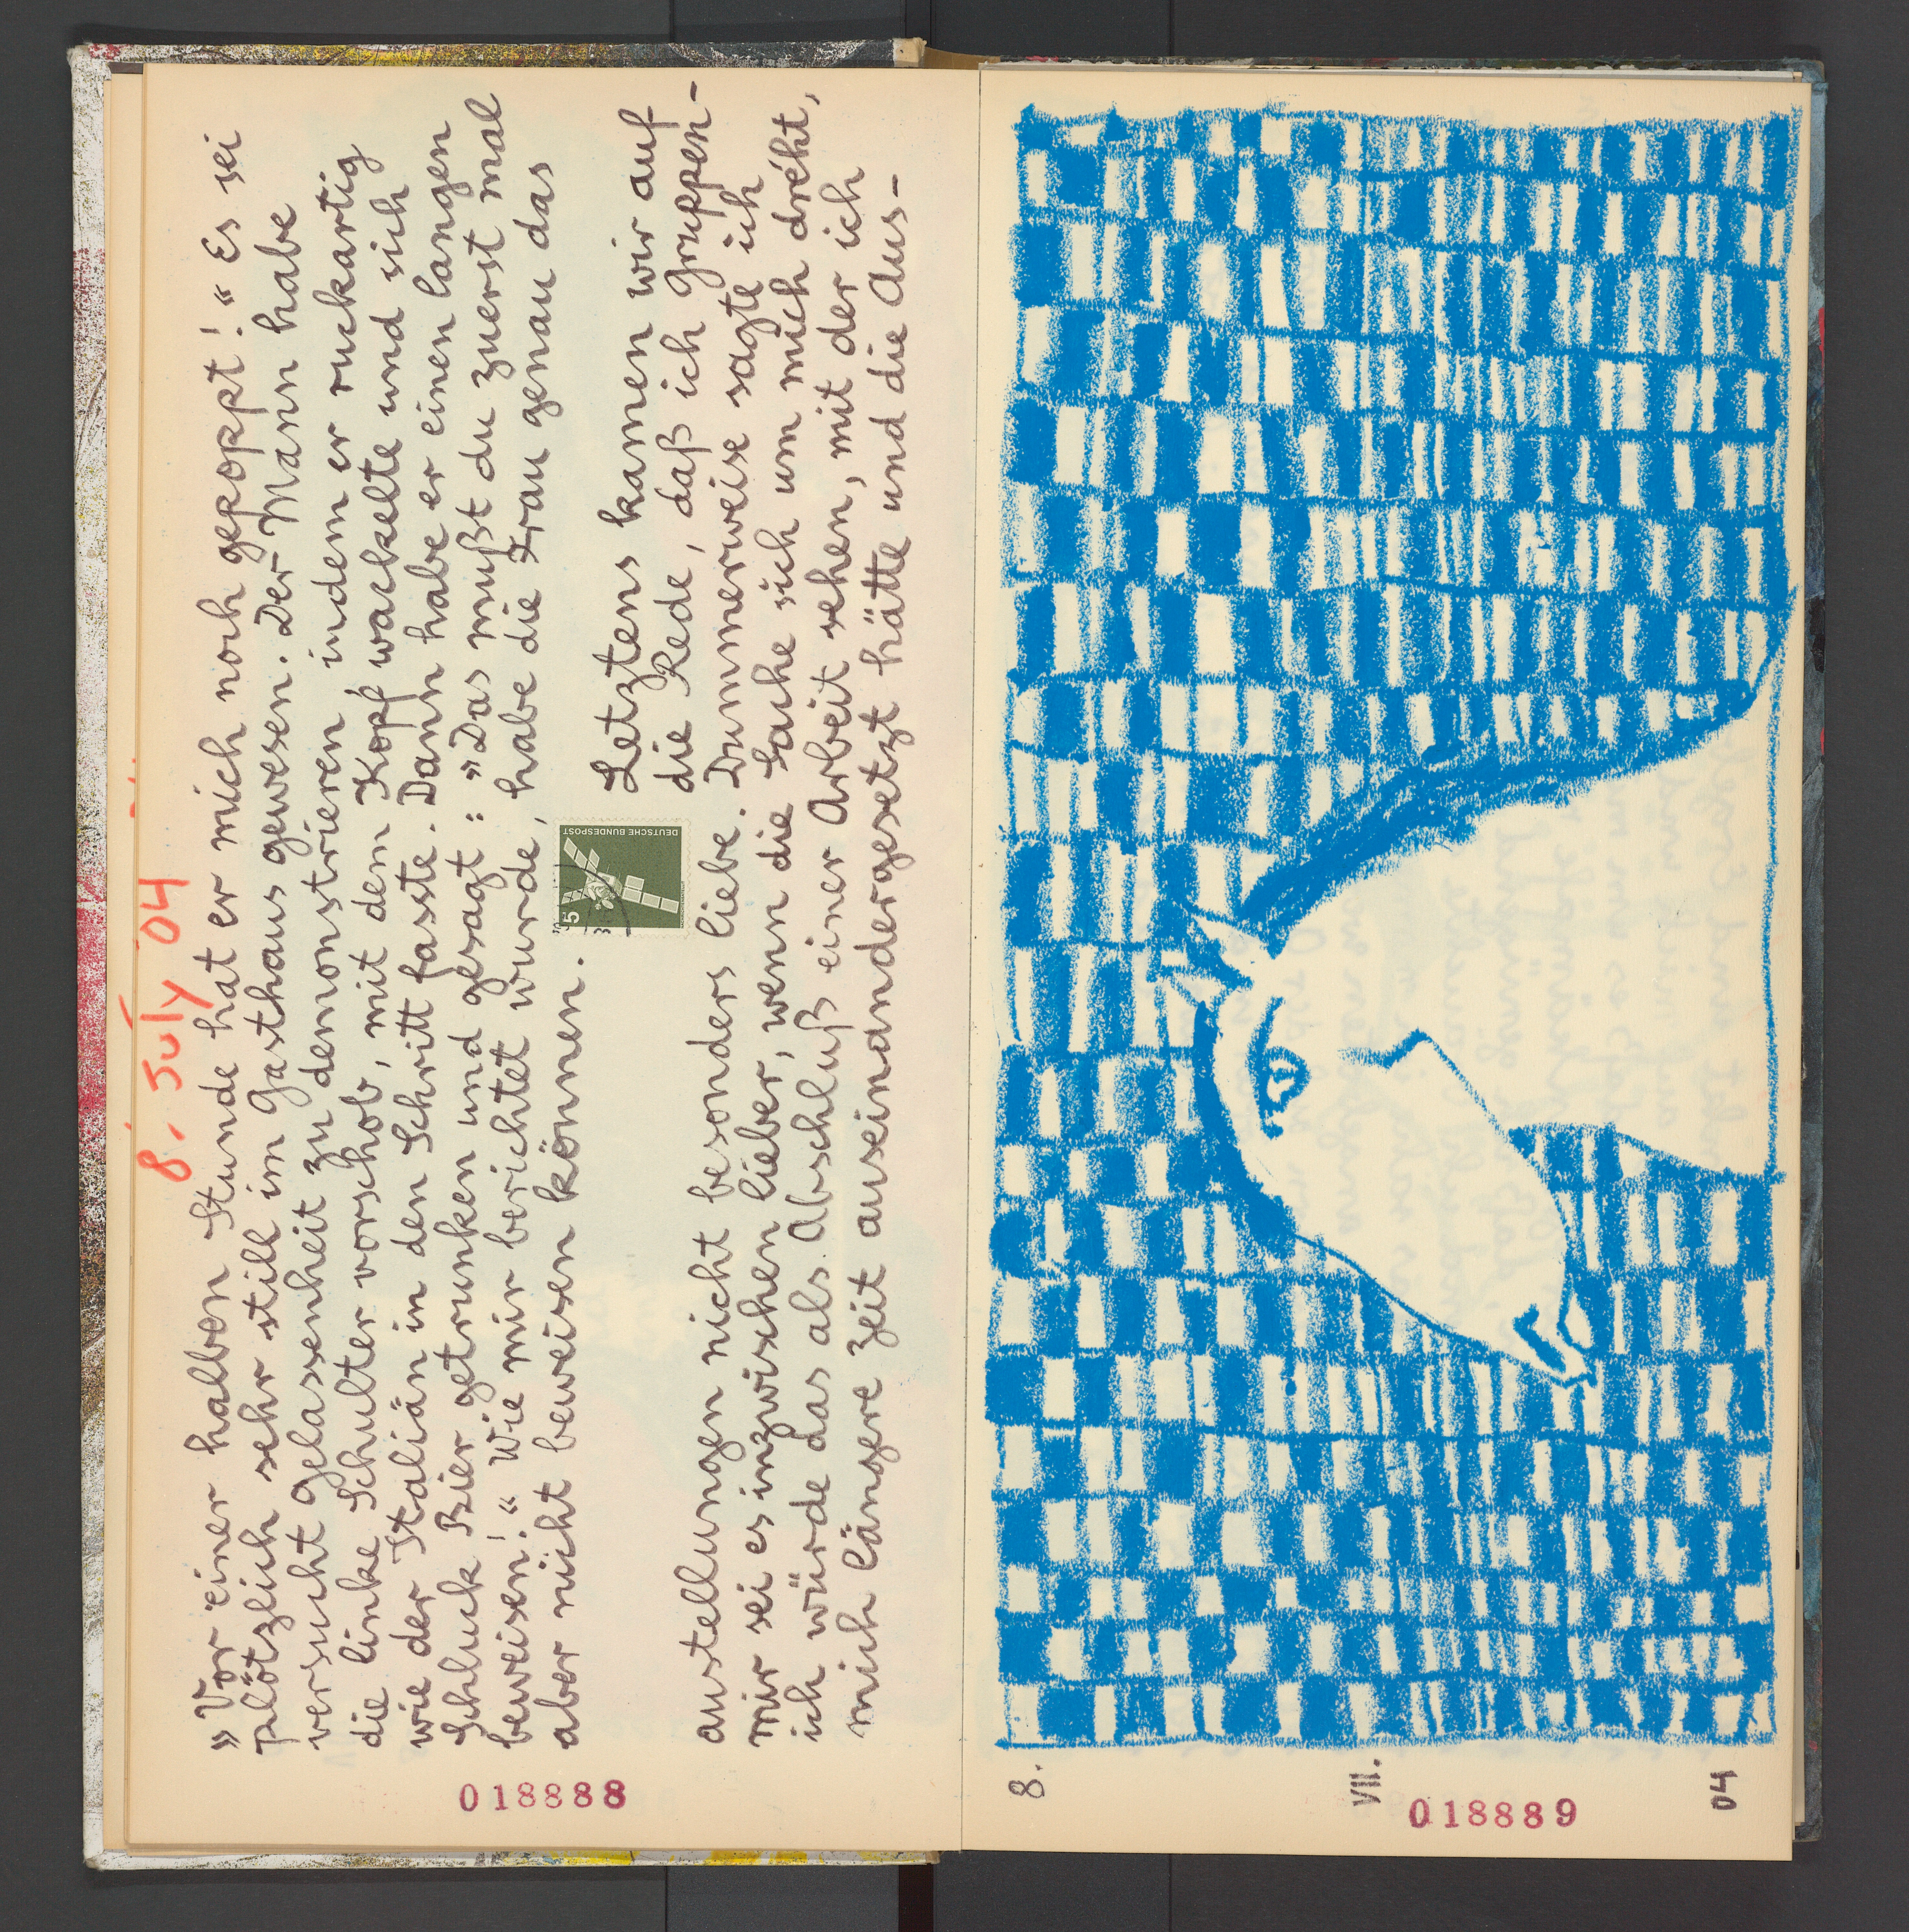 8. July 04
»Vor einer halben Stunde hat er mich noch gepoppt!« Es sei
plötzlich sehr still im Gasthaus gewesen. Der Mann habe
versucht Gelassenheit zu demonstrieren, indem er ruckartig
die linke Schulter vorschob, mit dem Kopf wackelte und sich
wie der Italiän in den Schritt fasste. Dann habe er einen langen
Schluck Bier getrunken und gesagt: »Das mußt du zuerst mal
beweisen!« Wie mir berichtet wurde, habe die Frau genau das
aber nicht beweisen können.
DEUTSCHE BUNDESPOST
5
Letztens kamen wir auf
die Rede, daß ich Gruppen-
austellungen nicht besonders liebe. Dummerweise sagte ich
mir sei es inzwischen lieber, wenn die Sache sich um mich dreht,
ich würde das als Abschluß einer Arbeit sehen, mit der ich
mich längere Zeit auseinandergesetzt hätte und die Aus-
018888
8.
VII.
04
018889